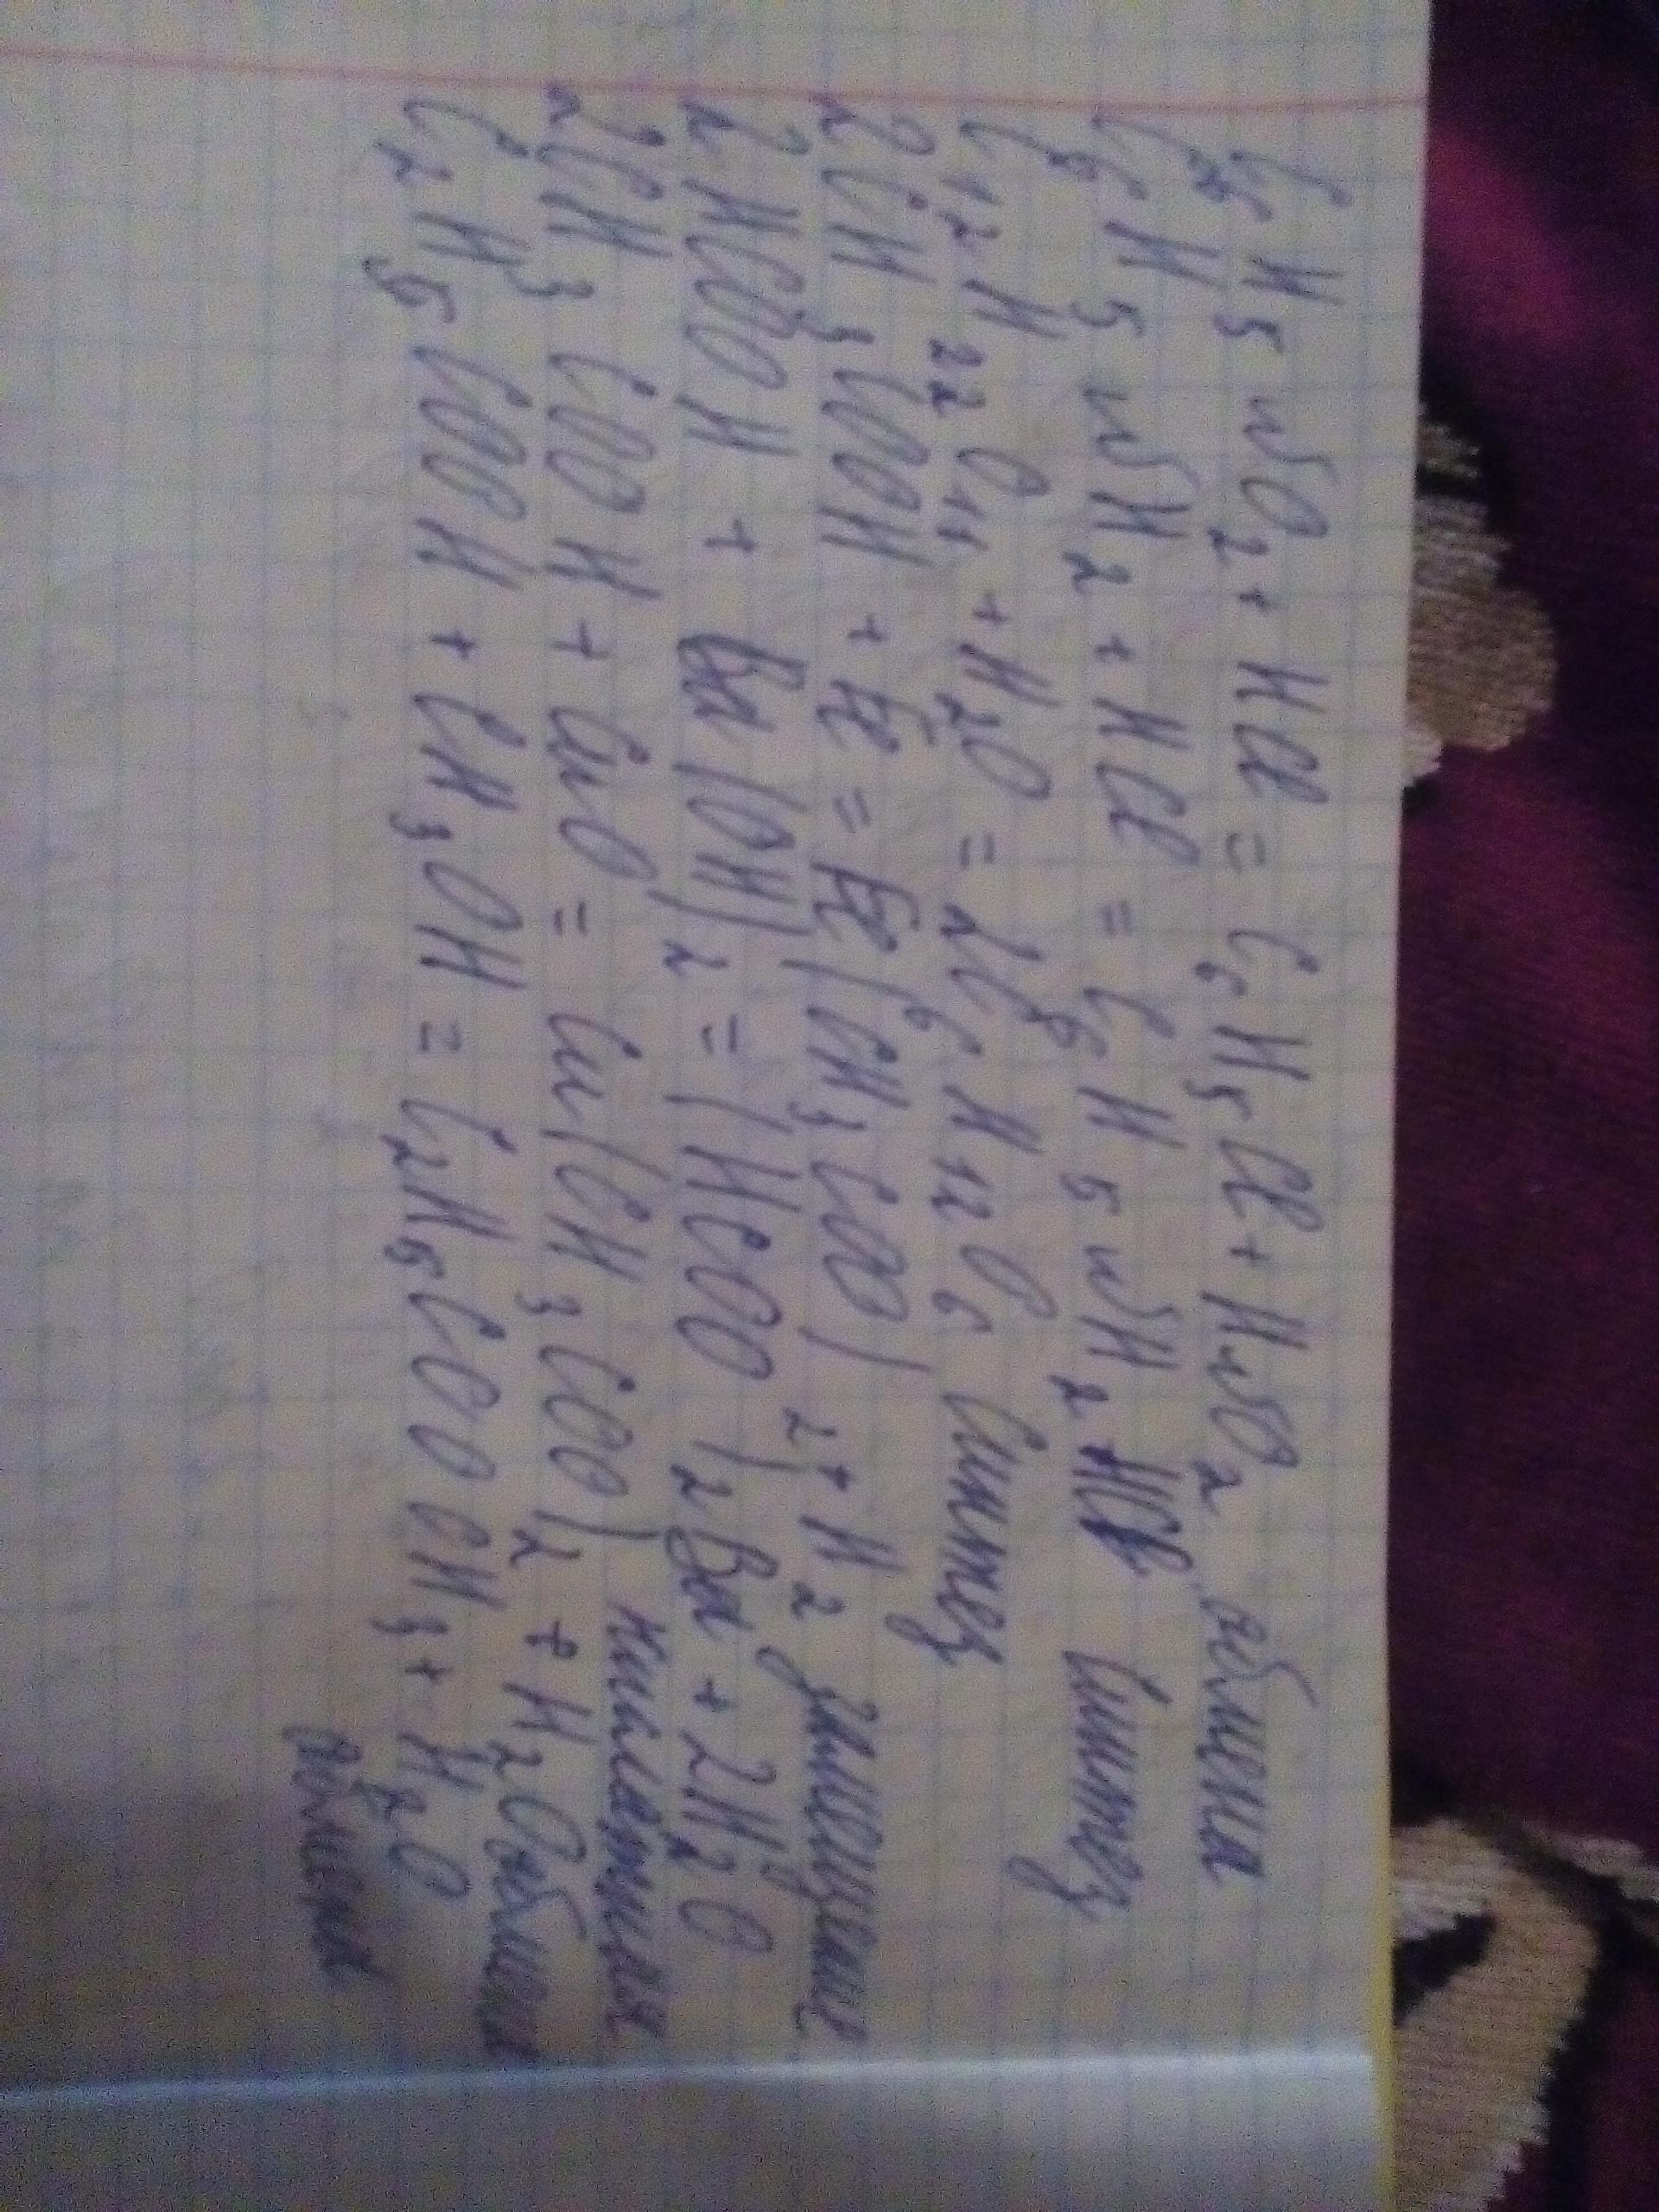 C₆H₅NO₂ + HCl = C₆H₅Cl + HNO₂ обмена
C₆H₅NH₂ + HCl = C₆H₅NH₂HCl Синтез
C₁₂H₂₂O₁₁ + H₂O = 2C₆H₁₂O₆ Синтез
2CH₃COOH + Fe = Fe(CH₃COO)₂ + H₂ замещение
2HCOOH + Ba(OH)₂ = (HCOO)₂Ba + 2H₂O
2CH₃COOH + CuO = Cu(CH₃COO)₂ + H₂O обмена
C₂H₅COOH + CH₃OH = C₂H₅COOCH₃ + H₂O
обмена